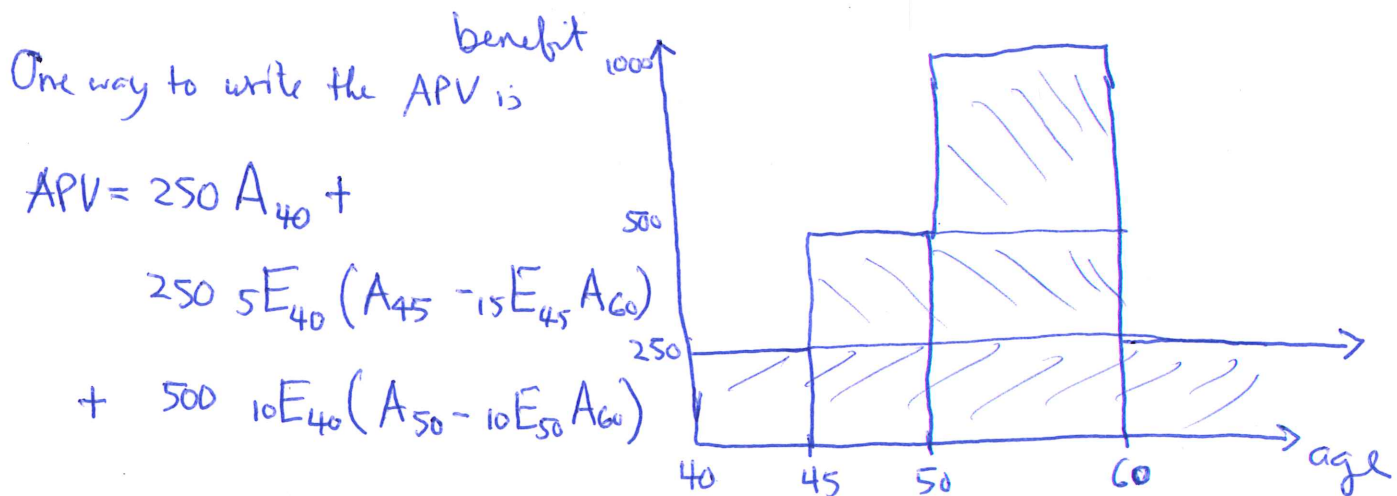 One way to write the APV is
APV = 250 A₄₀ +
250 ₅E₄₀ (A₄₅ - ₁₅E₄₅ A₆₀)
+ 500 ₁₀E₄₀ (A₅₀ - ₁₀E₅₀ A₆₀)
benefit
1000
500
250
40 45 50 60 age